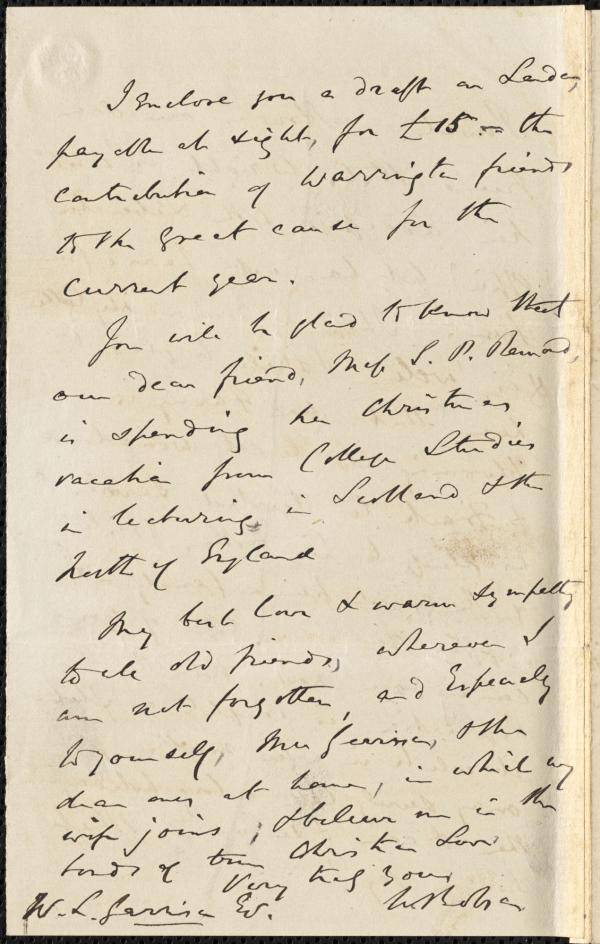 I enclose you a draft on London,
payable at sight, for £15 :- the
contribution of Warrington friends
to the great cause for the
current year.
You will be glad to know that
our dear friend, Miss S. P. Remond,
is spending her Christmas
vacation from College Studies
in lecturing in Scotland & the
North of England
My best love & warm sympathy
to all old friends, wherever I
am not forgotten, and Especially
to yourself, Mrs Garrison, & the
dear ones at home, in which my
wife joins; & believe me in the
bonds of true Christian Love
Very truly yours
W. L. Garrison Esq. W Robson